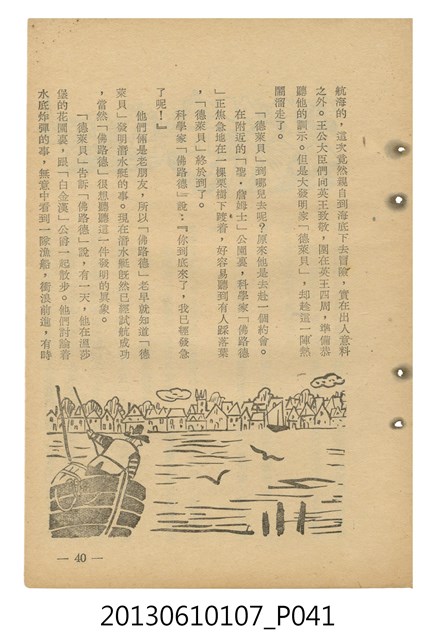 航海的，這次竟然親自到海底下去冒險，實在出人意料
之外。王公大臣們向英王致敬，圍在英王四周，準備恭
聽他的訓示。但是大發明家「德萊貝」，却趁這一陣熱
鬧溜走了。
「德萊貝」到哪兒去呢？原來他是去赴一個約會。
在附近的「聖・詹姆士」公園裏，科學家「佛路德
」正焦急地在一棵栗樹下咳着，好容易聽到有人踩落葉
，「德萊貝」終於到了。
科學家「佛路德」說：『你到底來了，我已經發急
了呢！』
他們倆是老朋友，所以「佛路德」老早就知道「德
萊貝」發明潛水艇的事。現在潛水艇旣然已經試航成功
，當然「佛路德」很想聽聽這一件發明的異象。
「德萊貝」告訴「佛路德」說，有一天，他在溫莎
堡的花園裏，跟「白金漢」公爵一起散步。他們討論着
水底炸彈的事，無意中看到一隊漁船，衝浪前進，有時
— 40 —
20130610107_P041